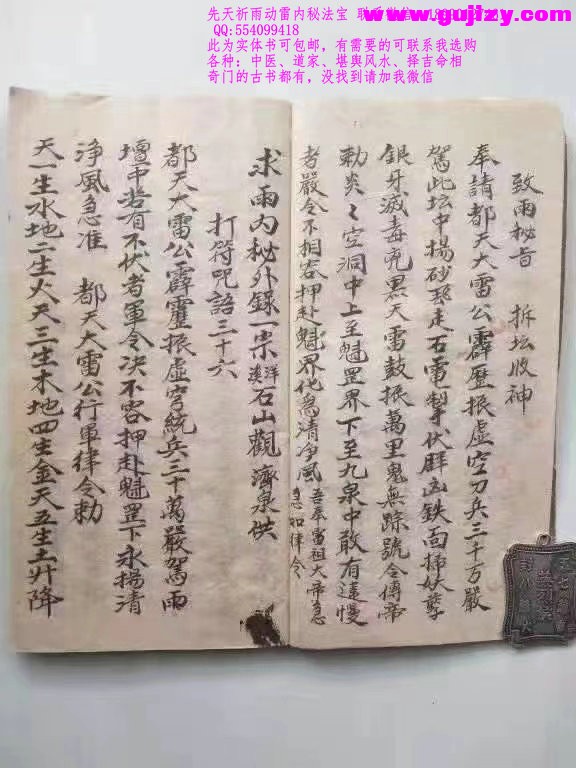 先天祈雨动雷内秘法宝
www.gujizy.com
QQ:554099418
此为实体书可包邮，有需要的可联系我选购
各种：中医、道家、堪舆风水、择吉命相
奇门的古书都有，没找到请加我微信
致雨秘旨 拆坛收神
奉請都天大雷公霹靂振虛空刀兵三千万嚴
駕此坛中揚砂飛走石電掣伏群凶鉄面摛妖孽
銀牙滅毒兇黑天雷鼓振萬里鬼無踪號令傳帝
勅炎〻空洞中上至魁罡界下至九泉中敢有違慢
者嚴令不相容押赴魁界化為清净風 吾奉雷祖大帝急
急如律令
求雨内秘外錄一宗 石山觀濟泉供
打符咒語三十六
都天大雷公霹靂振虛穹統兵三十萬嚴駕雨
壇中若有不伏者軍令决不容押赴魁罡下永揚清
净風急准 都天大雷公行軍律令勅
天一生水地二生火天三生木地四生金天五生土升降